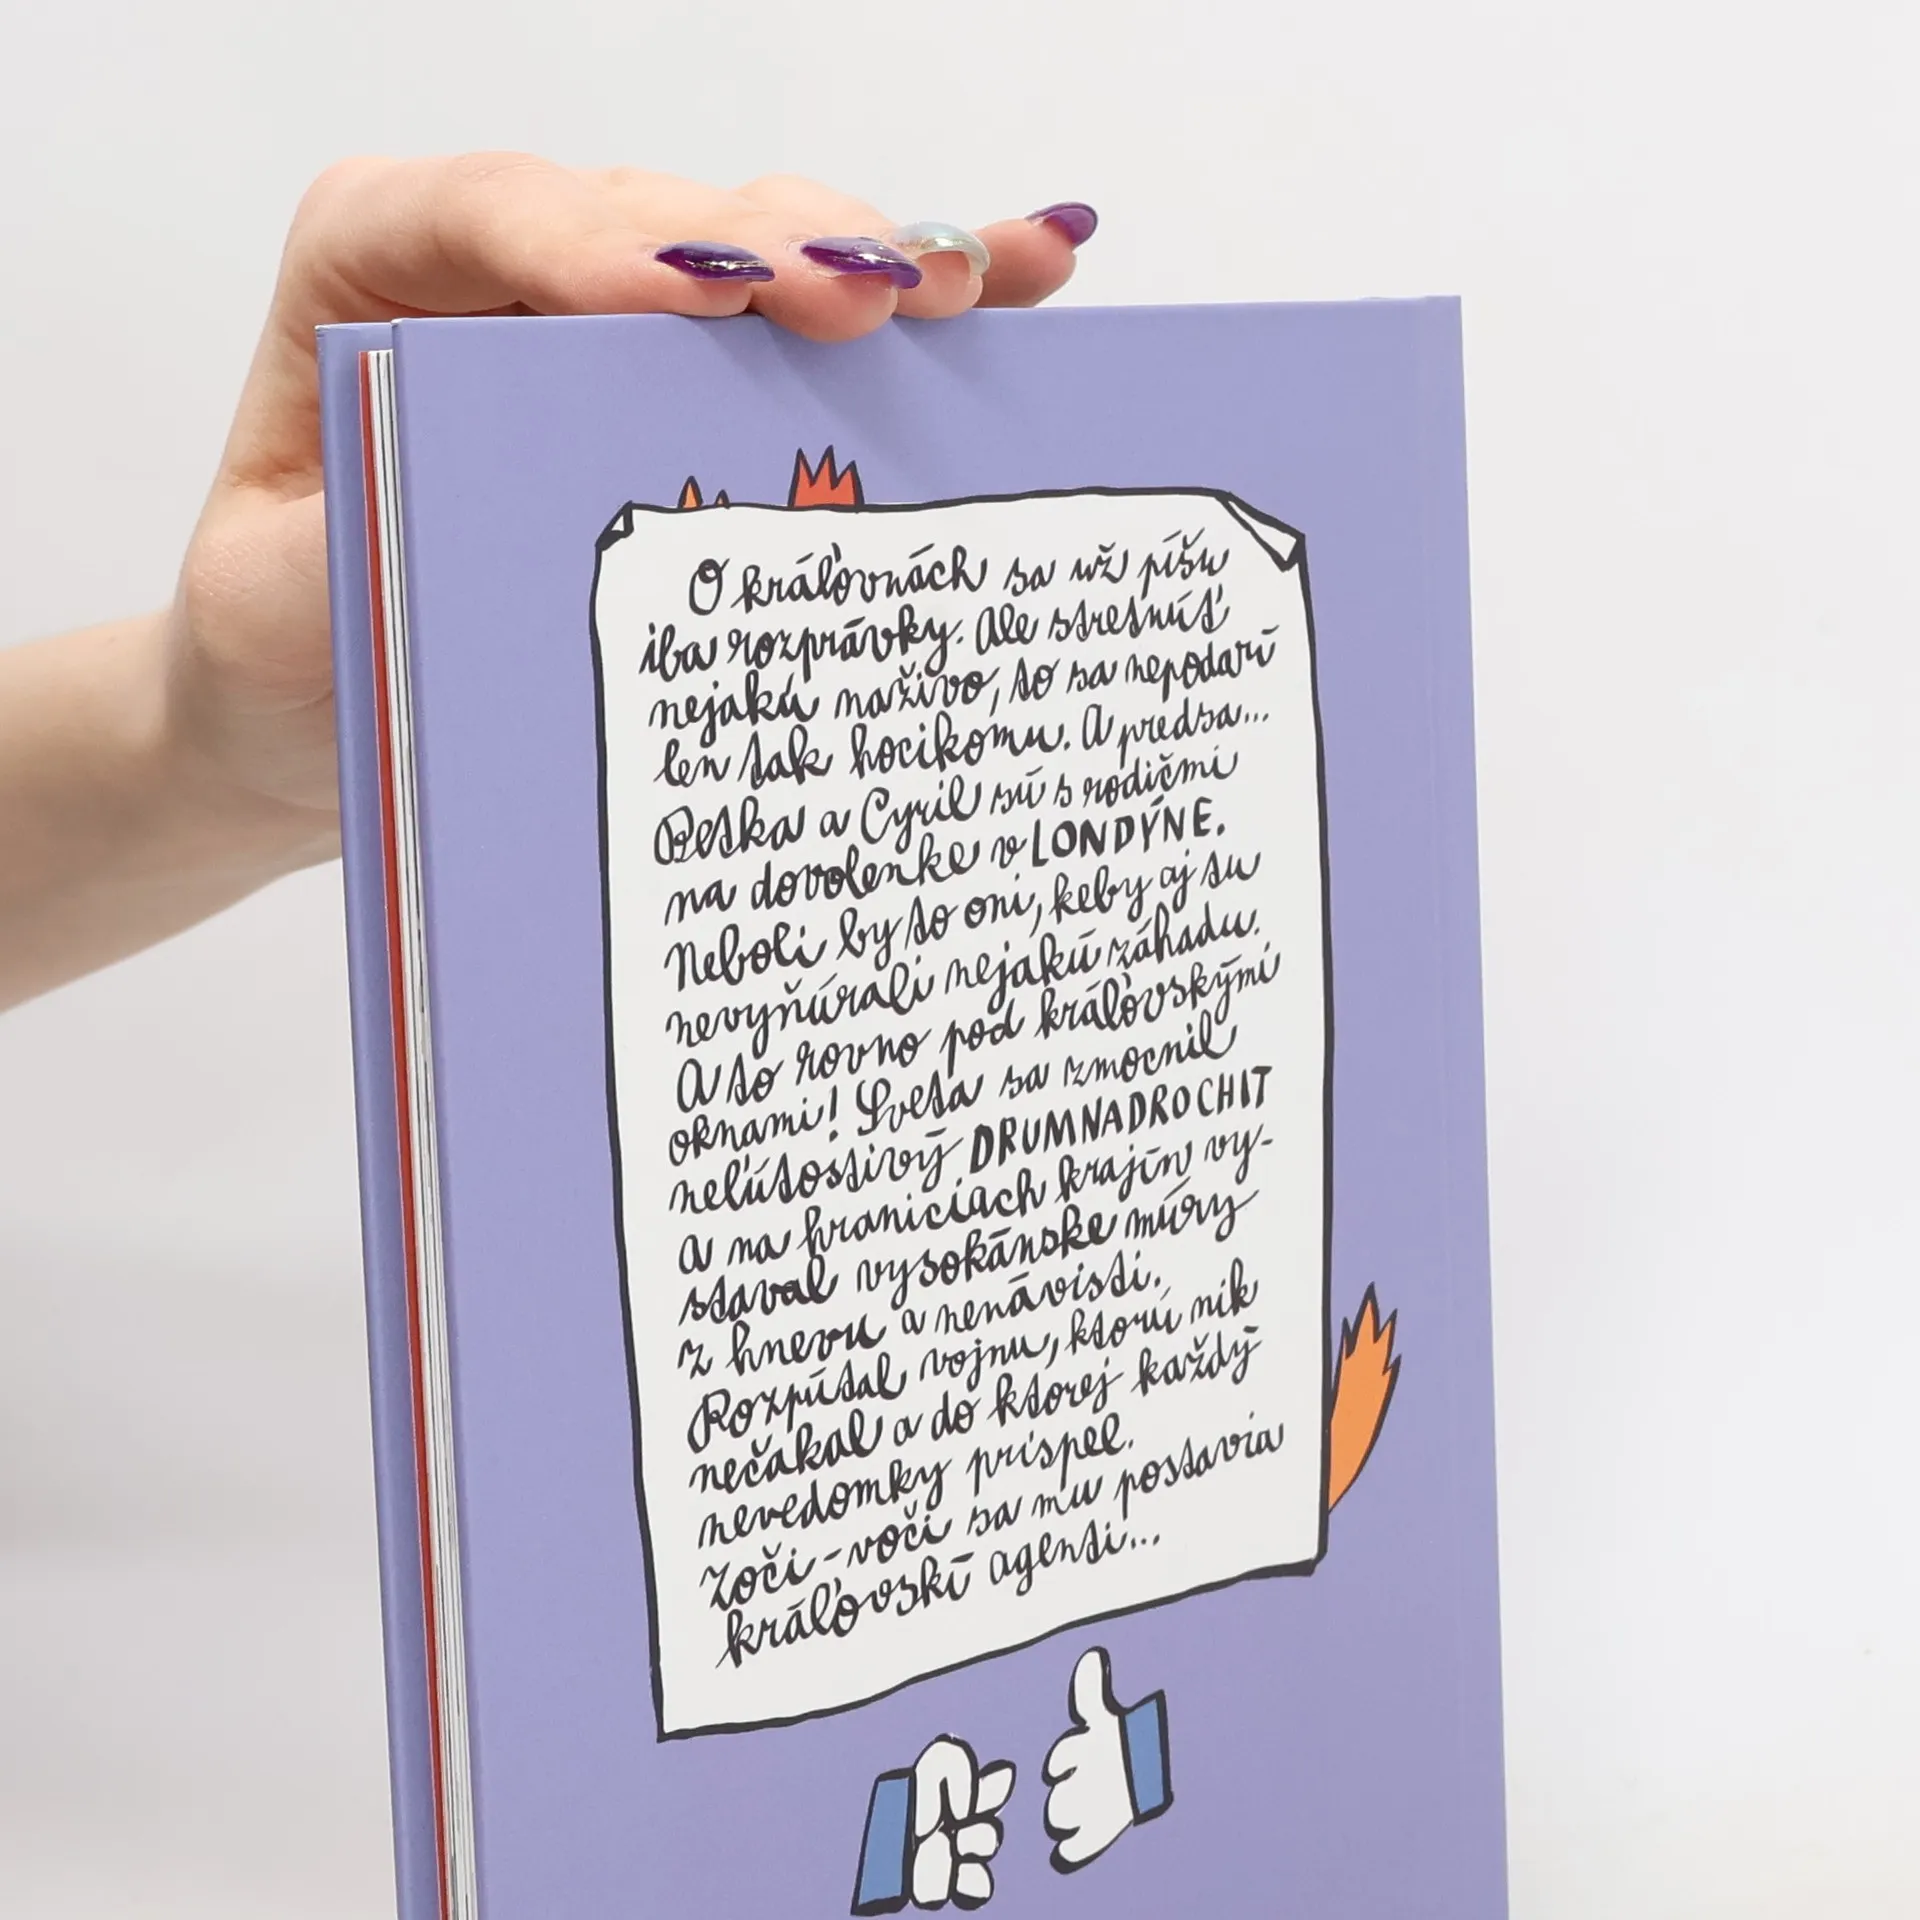 O kráľovnách sa už píšu
iba rozprávky. Ale stretnúť
nejakú naživo, to sa nepodarí
len tak hocikomu. A predsa...
Betka a Cyril sú s rodičmi
na dovolenke v LONDÝNE.
Neboli by to oni, keby aj tu
nevyňúrali nejakú záhadu.
A to rovno pod kráľovskými
oknami! Sveta sa zmocnil
neľútostivý DRUMNADROCHIT
a na hraniciach krajín vy-
staval vysokánske múry
z hnevu a nenávisti.
Rozpútal vojnu, ktorú nik
nečakal a do ktorej každý
nevedomky prispel.
Zoči-voči sa mu postavia
kráľovskí agenti...